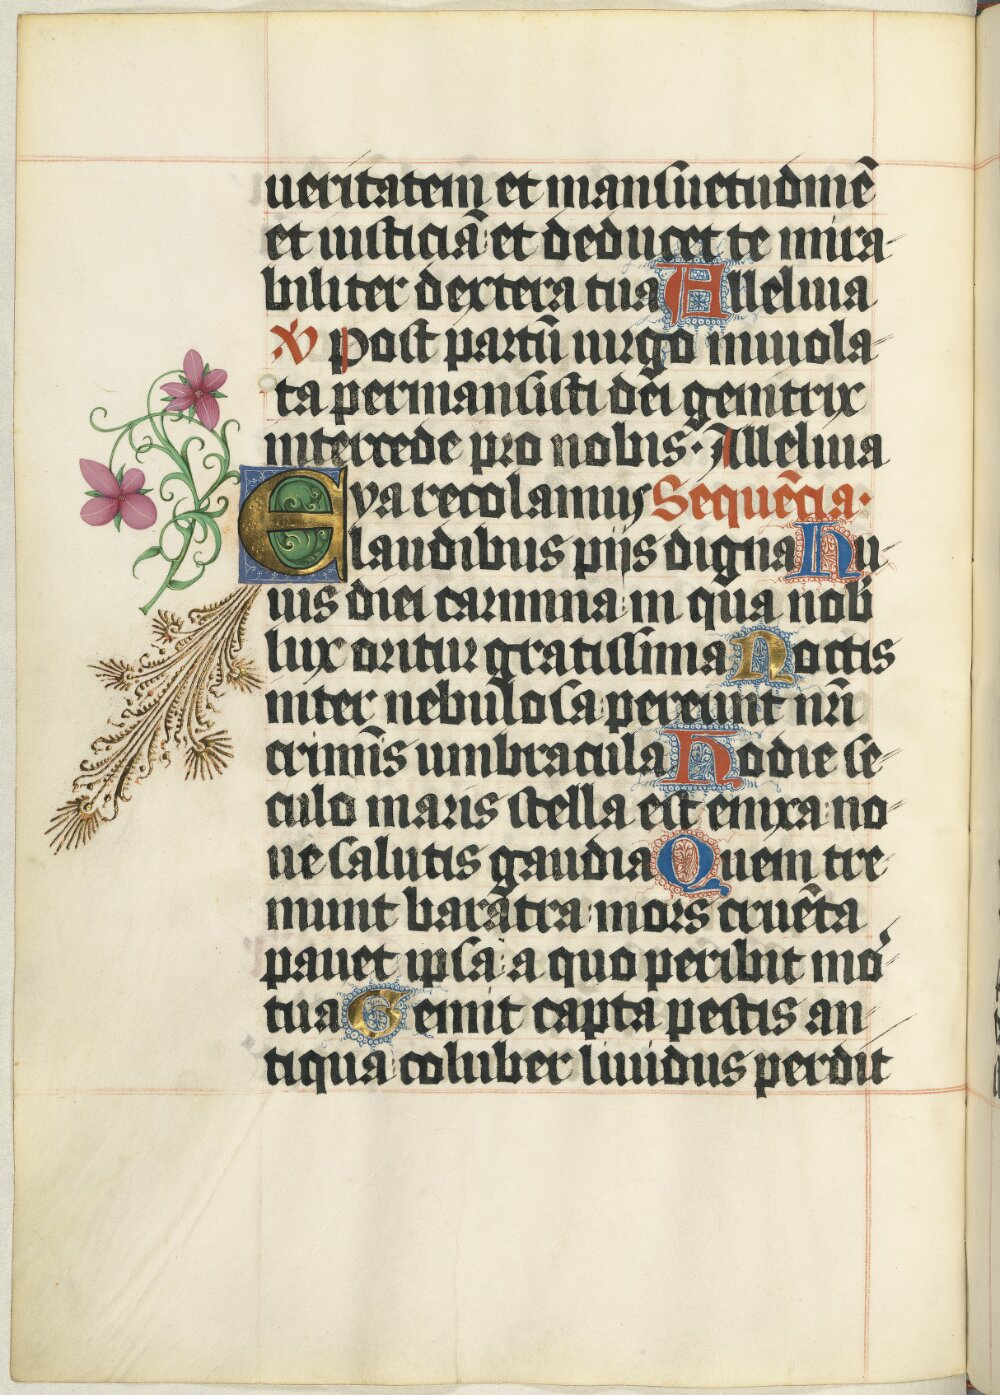 ueritatem et mansuetudinē
et iusticiā et deducet te mira-
biliter dextera tua Alleluia
V Post partū uirgo inuiola-
ta permansisti dei genitrix
intercede pro nobis. Alleluia
Eya recolamus Sequēcia.
laudibus piis digna Hu-
ius diei carmina in qua nob
lux oritur gratissima Noctis
inter nebulosa pereunt nr̄i
crimīs umbracula Hodie se-
culo maris stella est enixa no-
ue salutis gaudia Quem tre-
munt baratra mors cruēta
pauet ipsa a quo peribit mor-
tua Gemit capta pestis an-
tiqua coluber liuidus perdit